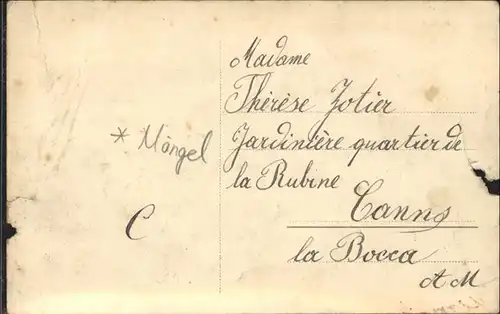 Madame
Thérèse Jotier
Jardinière quartier de
la Rubine
Canns
la Bocca
A M
* Mängel
C